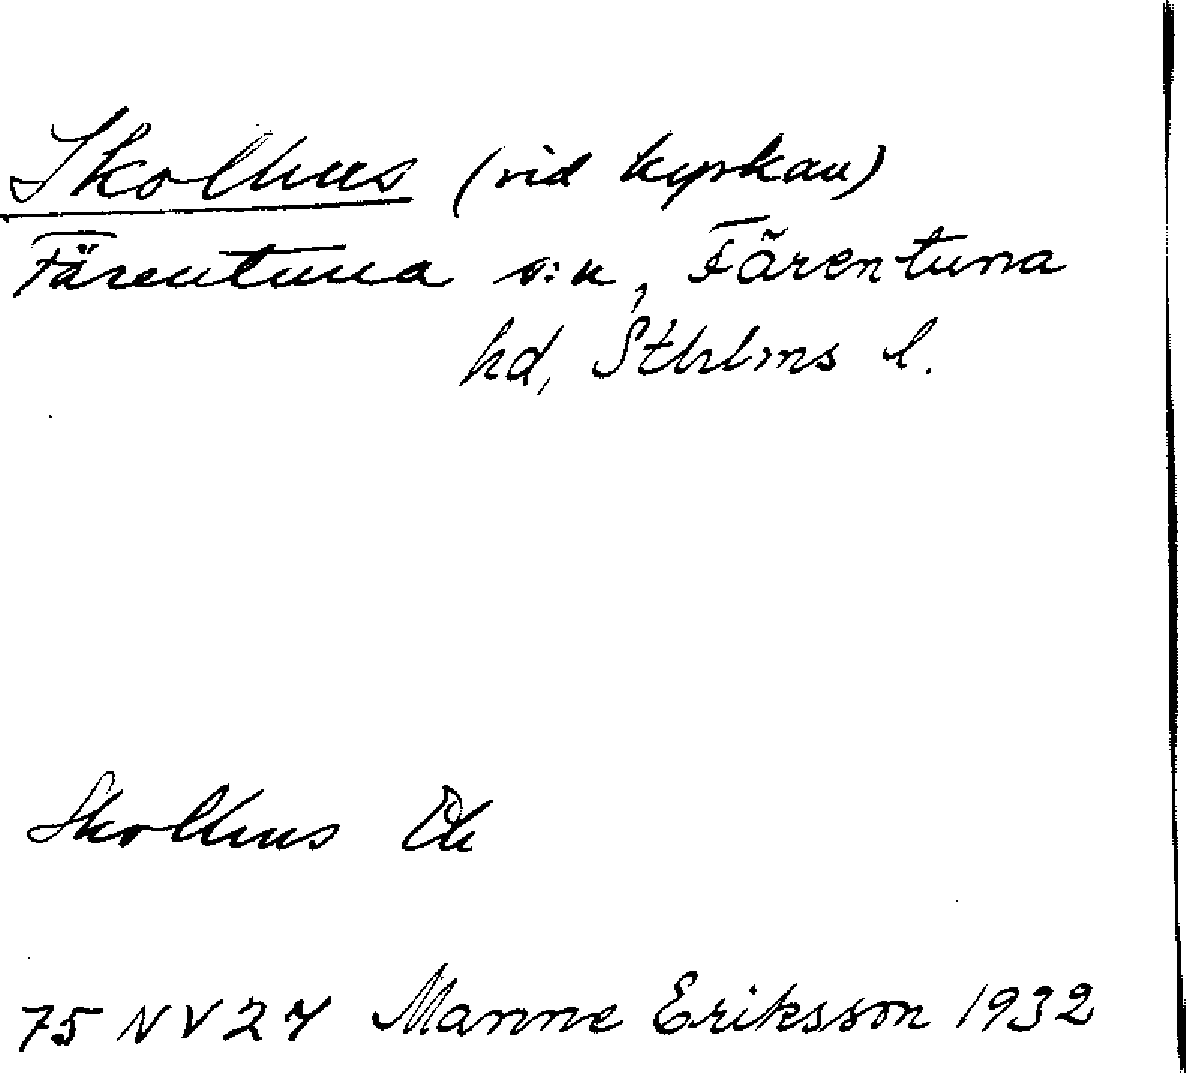 Skolhus (vid kyrkan)
Färentuna s:n, Färentuna
hd, Sthlms l.
Skolhus Ek
75 NV 27 Manne Eriksson 1932